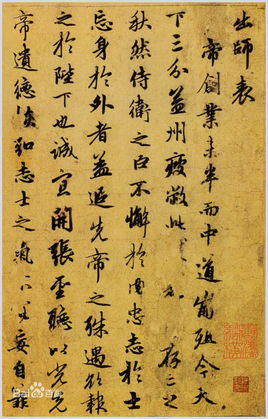 出師表
帝創業未半而中道崩殂今天
下三分益州疲敝此 存亡之
秋然侍衛之臣不懈於內忠志於士
忘身於外者蓋追先帝之殊遇欲報
之於陛下也誠宜開張聖聽以光先
帝遺德恢弘志士之氣不宜妄自菲
Bai百科